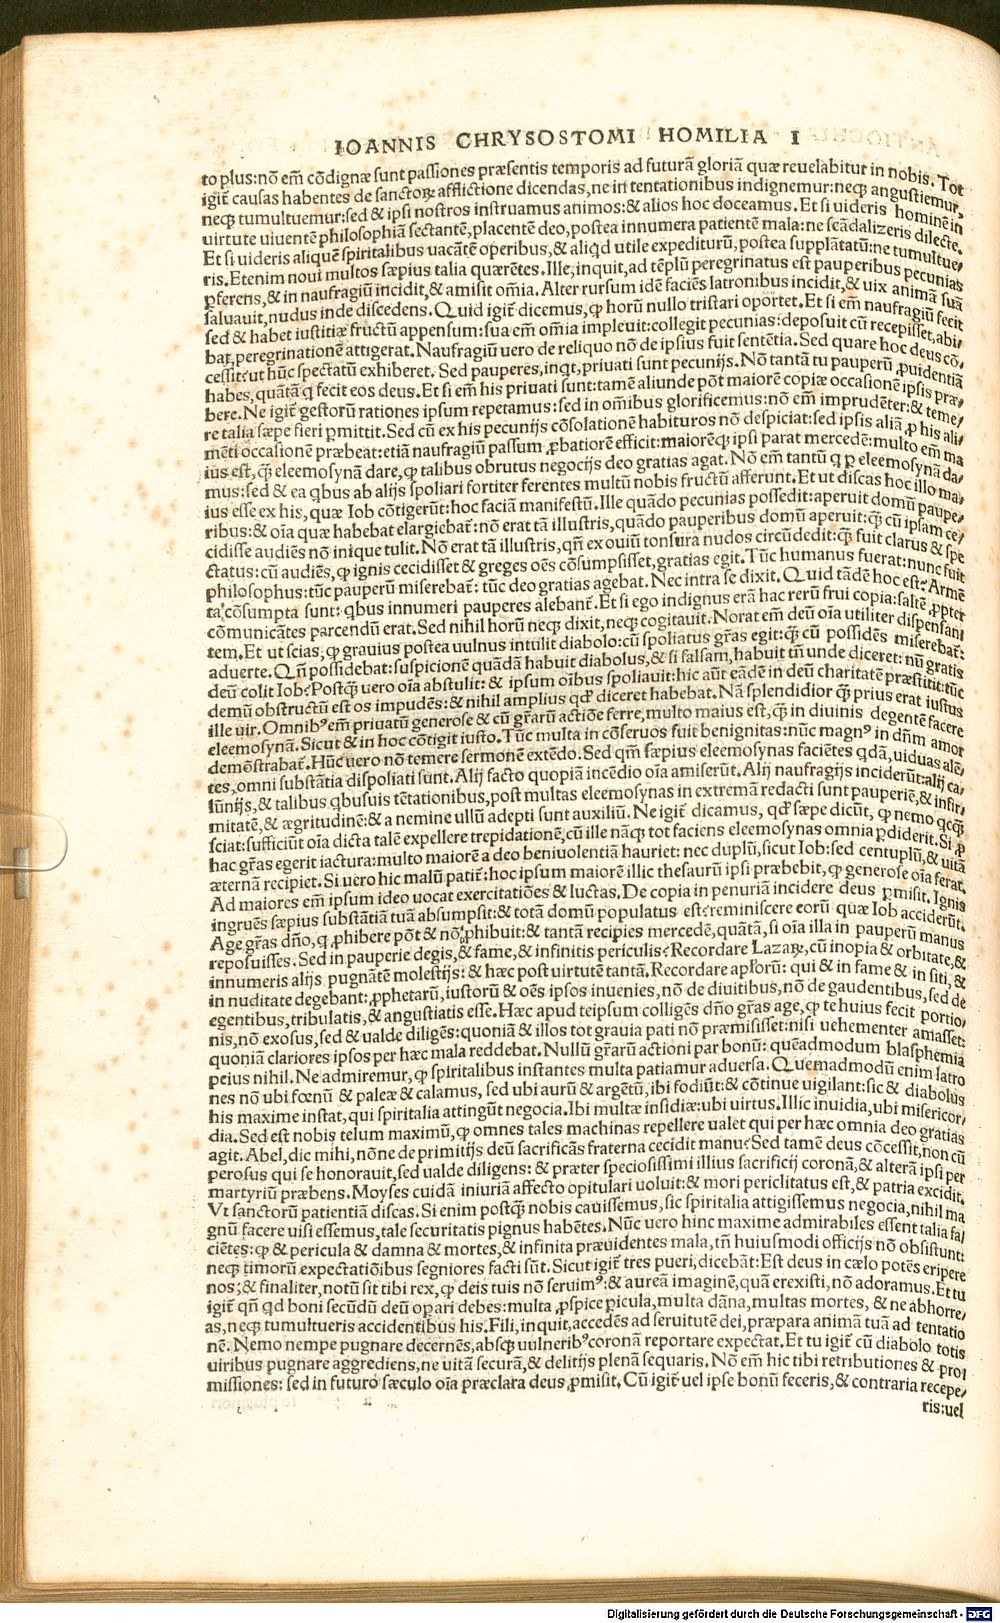 IOANNIS CHRYSOSTOMI HOMILIA I
to plus:nõ em̃ cõdignæ sunt passiones præsentis temporis ad futurã gloriã quæ reuelabitur in nobis. Tot
igit̃ causas habentes de sanctoꝝ afflictione dicendas,ne in tentationibus indignemur:neqꝫ angustiemur,
neqꝫ tumultuemur:sed & ipsi nostros instruamus animos:& alios hoc doceamus. Et si uideris hominẽ in
uirtute uiuentẽ philosophiã sectantẽ,placentẽ deo,postea innumera patientẽ mala: ne scãdalizeris dilecte.
Et si uideris aliquẽ spiritalibus uacãtẽ operibus,& aliqd utile expediturũ,postea supplãtatũ:ne tumultue/
ris.Etenim noui multos sæpius talia quærẽtes.Ille,inquit,ad tẽplũ peregrinatus est pauperibus pecunias
ꝑferens,& in naufragiũ incidit,& amisit om̃ia.Alter rursum idẽ faciẽs latronibus incidit,& uix animã suã
saluauit,nudus inde discedens.Quid igit̃ dicemus,ꝙ horũ nullo tristari oportet.Et si em̃ naufragiũ fecit
sed & habet iustitiæ fructũ appensum:sua em̃ om̃ia impleuit:collegit pecunias:deposuit cũ recepisset,abi/
bat,peregrinationẽ attigerat.Naufragiũ uero de reliquo nõ de ipsius fuit sentẽtia. Sed quare hoc deus cõ/
cessit:ut hũc spectatũ exhiberet. Sed pauperes,inqt,priuati sunt pecunijs. Nõ tantã tu pauperũ ꝓuidentiã
habes,quãtã q fecit eos deus.Et si em̃ his priuati sunt:tamẽ aliunde põt maiorẽ copiæ occasionẽ ipsis præ/
bere. Ne igit̃ gestorũ rationes ipsum repetamus:sed in om̃ibus glorificemus:nõ em̃ imprudẽter:& teme/
re talia sæpe fieri ꝑmittit.Sed cũ ex his pecunijs cõsolationẽ habituros nõ despiciat:sed ipsis aliã ꝓ his ali/
mẽti occasionẽ præbeat:etiã naufragiũ passum ꝓbatiorẽ efficit:maiorẽqꝫ ipsi parat mercedẽ:multo em̃ ma
ius est,q̃ eleemosynã dare,ꝙ talibus obrutus negocijs deo gratias agat. Nõ em̃ tantũ q ꝑ eleemosynã da/
mus:sed & ea qbus ab alijs spoliari fortiter ferentes multũ nobis fructũ afferunt. Et ut discas hoc illo ma/
ius esse ex his, quæ Iob cõtigerũt:hoc faciã manifestũ.Ille quãdo pecunias possedit:aperuit domũ paupe/
ribus:& oĩa quæ habebat elargiebat̃:nõ erat tã illustris,quãdo pauperibus domũ aperuit:q̃ cũ ipsam ce/
cidisse audiẽs nõ inique tulit. Nõ erat tã illustris,qñ ex ouiũ tonsura nudos circũdedit:q̃ fuit clarus & spe
ctatus: cũ audiẽs,ꝙ ignis cecidisset & greges oẽs cõsumpsisset,gratias egit.Tũc humanus fuerat:nunc fuit
philosophus:tũc pauperũ miserebat̃: tũc deo gratias agebat. Nec intra se dixit. Quid tãdẽ hoc est: Armẽ
ta cõsumpta sunt: qbus innumeri pauperes alebant̃.Et si ego indignus erã hac rerũ frui copia:saltẽ ꝓpter
cõmunicãtes parcendũ erat.Sed nihil horũ neqꝫ dixit,neqꝫ cogitauit. Norat em̃ deũ oĩa utiliter dispensanĩ
tem.Et ut scias,ꝙ grauius postea uulnus intulit diabolo:cũ spoliatus gr̃as egit:q̃ cũ possidẽs miserebat̃:
aduerte. Qñ possidebat:suspicionẽ quãdã habuit diabolus,& si falsam,habuit tñ unde diceret: nũ gratis
deũ colit Iob:Postq̃ uero oĩa abstulit: & ipsum oĩbus spoliauit:hic aũt eãdẽ in deũ charitatẽ præstitit:tũc
demũ obstructũ est os impudẽs:& nihil amplius qd diceret habebat. Nã splendidior q̃ prius erat iustus
ille uir.Omnibꝰ em̃ priuatũ generose & cũ gr̃arũ actiõe ferre,multo maius est,q̃ in diuinis degentẽ facere
eleemosynã. Sicut & in hoc cõtigit iusto.Tũc multa in cõseruos fuit benignitas:nũc magnꝰ in dñm amor
demõstrabat̃.Hũc uero nõ temere sermonẽ extẽdo. Sed qm̃ sæpius eleemosynas faciẽtes qdã,uiduas alẽ/
tes,omni substãtia dispoliati sunt.Alij facto quopiã incẽdio oĩa amiserũt.Alij naufragijs inciderũt:alij ca/
lũnijs,& talibus qbusuis tẽtationibus,post multas eleemosynas in extremã redacti sunt pauperiẽ,& infir/
mitatẽ,& ægritudinẽ:& a nemine ullũ adepti sunt auxiliũ. Ne igit̃ dicamus, qd sæpe dicũt, ꝙ nemo qcq̃
sciat:sufficiũt oĩa dicta talẽ expellere trepidationẽ,cũ ille nãqꝫ tot faciens eleemosynas omnia ꝑdiderit.Si ꝓ
hac gr̃as egerit iactura:multo maiorẽ a deo beniuolentiã hauriet: nec duplũ,sicut Iob:sed centuplũ,& uitã
æternã recipiet. Si uero hic malũ patit̃:hoc ipsum maiorẽ illic thesaurũ ipsi præbebit,ꝙ generose oĩa ferat.
Ad maiores em̃ ipsum ideo uocat exercitatiões & luctas. De copia in penuriã incidere deus ꝑmisit. Ignis
ingruẽs sæpius substãtiã tuã absumpsit:& totã domũ populatus est:reminiscere eorũ quæ Iob acciderũt.
Age gr̃as dño,q ꝓhibere põt & nõ ꝓhibuit:& tantã recipies mercedẽ,quãtã,si oĩa illa in pauperũ manus
reposuisses. Sed in pauperie degis,& fame,& infinitis periculis: Recordare Lazaꝝ,cũ inopia & orbitate,&
innumeris alijs pugnãtẽ molestijs: & hæc post uirtutẽ tantã. Recordare apl̃orũ: qui & in fame & in siti, &
in nuditate degebant: ꝓphetarũ,iustorũ & oẽs ipsos inuenies,nõ de diuitibus,nõ de gaudentibus,sed de
egentibus,tribulatis,& angustiatis esse.Hæc apud teipsum colligẽs dño gr̃as age,ꝙ te huius fecit portio/
nis,nõ exosus,sed & ualde diligẽs: quoniã & illos tot grauia pati nõ præmisisset:nisi uehementer amasset:
quoniã clariores ipsos per hæc mala reddebat. Nullũ gr̃arũ actioni par bonũ: quẽadmodum blasphemia
peius nihil. Ne admiremur,ꝙ spiritalibus instantes multa patiamur aduersa. Quemadmodũ enim latro
nes nõ ubi fœnũ & paleæ & calamus, sed ubi aurũ & argẽtũ, ibi fodiũt:& cõtinue uigilant:sic & diabolus
his maxime instat, qui spiritalia attingũt negocia.Ibi multæ insidiæ:ubi uirtus.Illic inuidia,ubi misericor/
dia. Sed est nobis telum maximũ,ꝙ omnes tales machinas repellere ualet qui per hæc omnia deo gratias
agit. Abel, dic mihi,nõne de primitijs deũ sacrificãs fraterna cecidit manu: Sed tamẽ deus cõcessit,non cũ
perosus qui se honorauit,sed ualde diligens: & præter speciosissimi illius sacrificij coronã,& alterã ipsi per
martyriũ præbens. Moyses cuidã iniuriã affecto opitulari uoluit:& mori periclitatus est,& patria excidit.
Vt sanctorũ patientiã discas. Si enim postq̃ nobis cauissemus,sic spiritalia attigissemus negocia,nihil ma
gnũ facere uisi essemus,tale securitatis pignus habẽtes. Nũc uero hinc maxime admirabiles essent talia fa/
ciẽtes:ꝙ & pericula & damna & mortes,& infinita præuidentes mala,tñ huiusmodi officijs nõ obsistunt:
neqꝫ timorũ expectatiõibus segniores facti sũt. Sicut igit̃ tres pueri,dicebãt:Est deus in cælo potẽs eripere
nos;& finaliter,notũ sit tibi rex,ꝙ deis tuis nõ seruimꝰ:& aureã imaginẽ,quã erexisti,nõ adoramus.Et tu
igit̃ qñ qd boni secũdũ deũ oꝑari debes:multa ꝓspice ꝑicula,multa dãna,multas mortes, & ne abhorre/
as,neqꝫ tumultueris accidentibus his.Fili,inquit,accedẽs ad seruitutẽ dei,præpara animã tuã ad tentatio
nẽ. Nemo nempe pugnare decernẽs,absqꝫ uulneribꝰ coronã reportare expectat.Et tu igit̃ cũ diabolo totis
uiribus pugnare aggrediens,ne uitã securã,& delitijs plenã sequaris. Nõ em̃ hic tibi retributiones & pro/
missiones: sed in futuro sæculo oĩa præclara deus ꝓmisit. Cũ igit̃ uel ipse bonũ feceris,& contraria recepe/
ris:uel
Digitalisierung gefördert durch die Deutsche Forschungsgemeinschaft - DFG